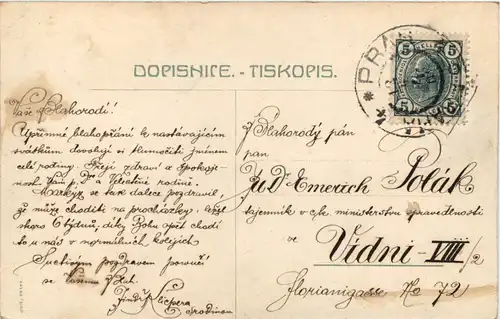 DOPISNICE. - TISKOPIS.
PRAH
5 5
5 5
Vaše Blahorodí!
Upřímné blahopřání k nastávajícím
svátkům dovoluji si tlumočiti jménem
celé rodiny. Přeji zdraví a spokoj-
nost Vám p. Dr a Vzácné rodině.
se též dalece pozdravil,
že může choditi na procházky.
skoro Otýdnů, díky Bohu opět chodí
to u nás v normálních kolejích
Srdečným pozdravem poroučí
se Vašemu Blah.
Jindř. Klicpera
s rodinou
Blahorodý pán
pan
JUDr Emerich Polák
tajemník v c.k. ministerstvu spravedlnosti
ve
Vídni - VIII/2
Florianigasse No 72